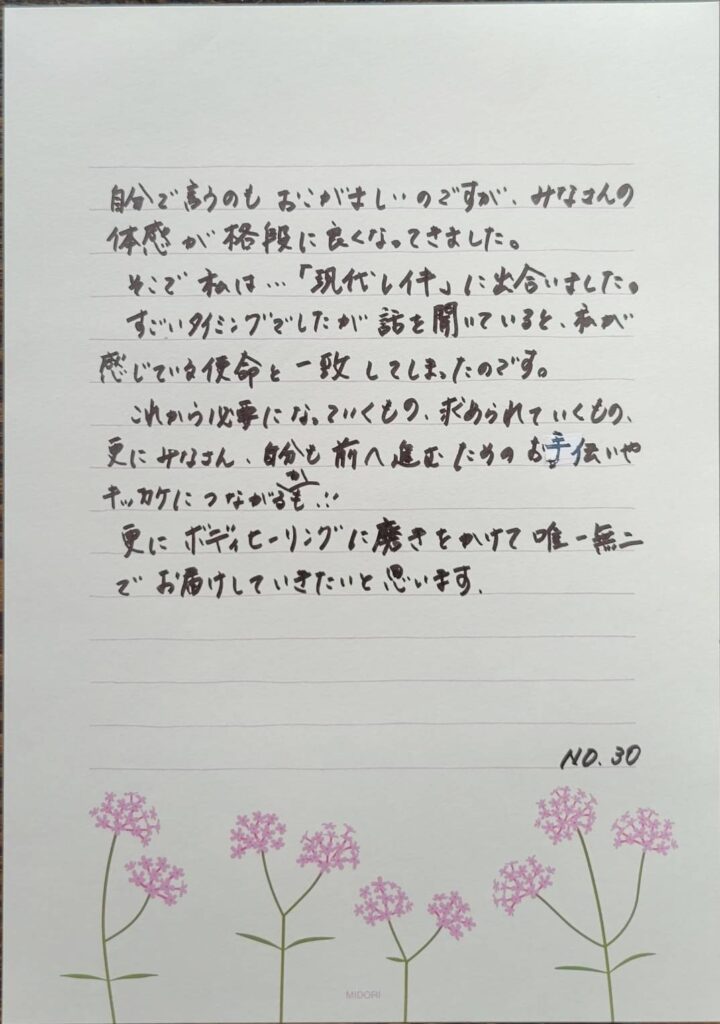 自分で言うのもおこがましいのですが、みなさんの
体感が格段に良くなってきました。
そこで私は…「現代レイキ」に出合いました。
すごいタイミングでしたが話を聞いていると、私が
感じている使命と一致してしまったのです。
これから必要になっていくもの、求められていくもの、
更にみなさん、自分も前へ進むためのお手伝いや
か
キッカケにつながるも…
更にボディヒーリングに磨きをかけて唯一無二
でお届けしていきたいと思います。
NO.30
MIDORI